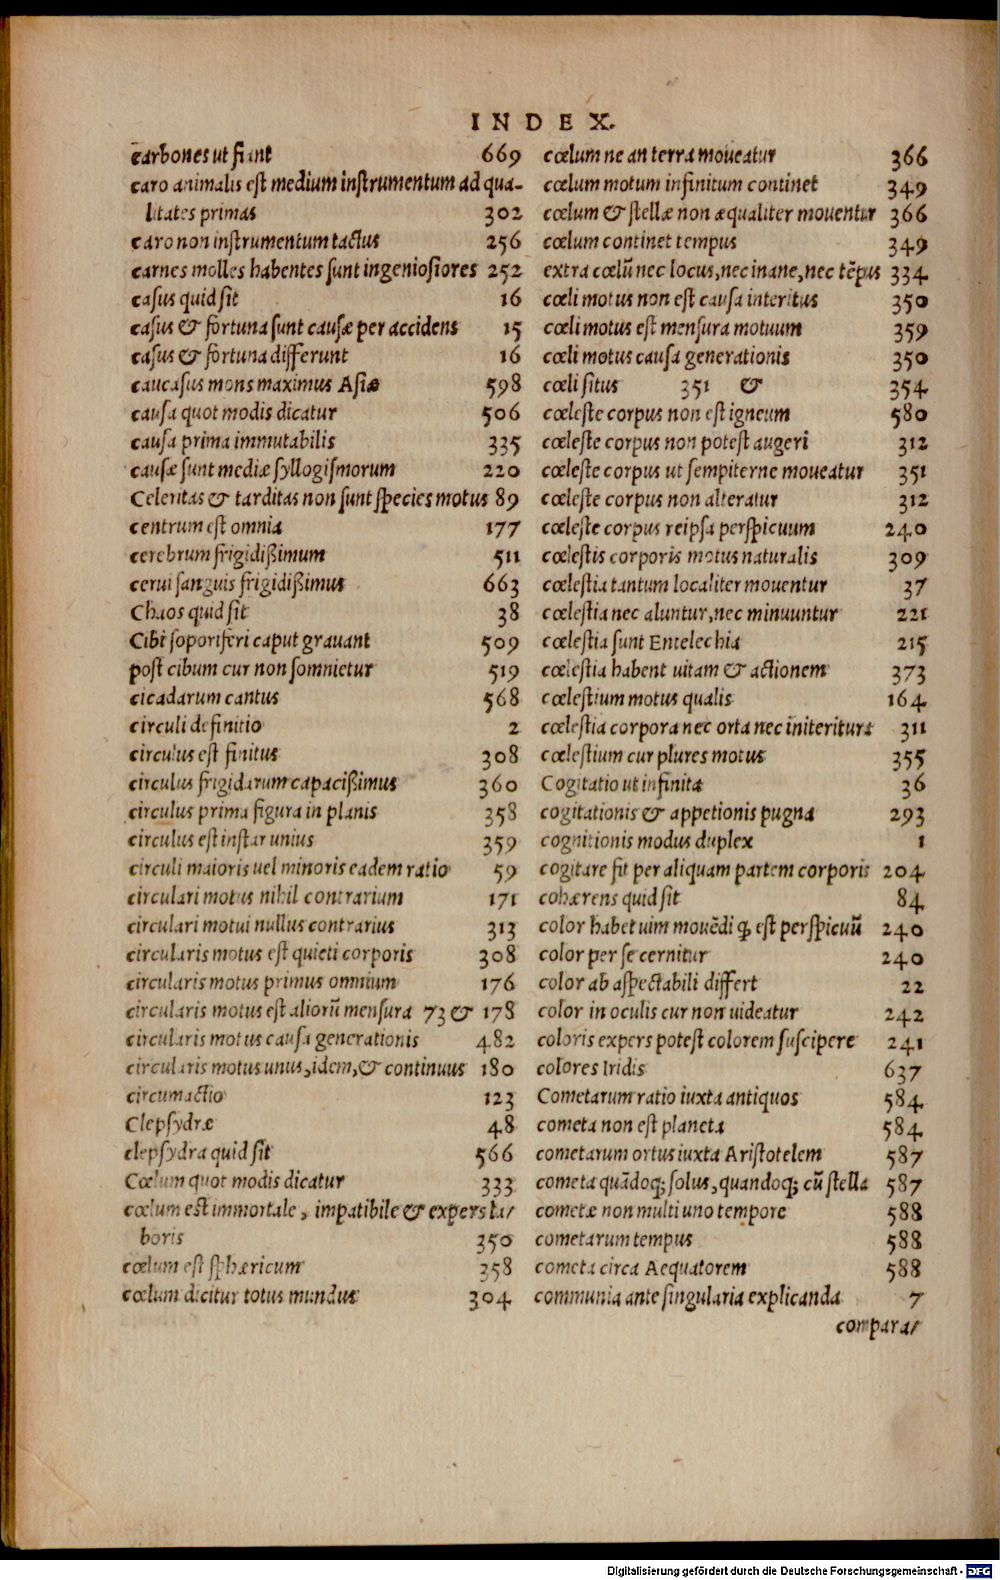 INDEX.
carbones ut fiant 669
caro animalis est medium instrumentum ad qua-
litates primas 302
caro non instrumentum tactus 256
carnes molles habentes sunt ingeniosiores 252
casus quid sit 16
casus & fortuna sunt causæ per accidens 15
casus & fortuna differunt 16
caucasus mons maximus Asiæ 598
causa quot modis dicatur 506
causa prima immutabilis 335
causæ sunt mediæ syllogismorum 220
Celeritas & tarditas non sunt species motus 89
centrum est omnia 177
cerebrum frigidißimum 511
cerui sanguis frigidißimus 663
Chaos quid sit 38
Cibi soporiferi caput grauant 509
post cibum cur non somnietur 519
cicadarum cantus 568
circuli definitio 2
circulus est finitus 308
circulus frigidarum capacißimus 360
circulus prima figura in planis 358
circulus est instar unius 359
circuli maioris uel minoris eadem ratio 59
circulari motus nihil contrarium 171
circulari motui nullus contrarius 313
circularis motus est quieti corporis 308
circularis motus primus omnium 176
circularis motus est aliorũ mensura 73 & 178
circularis motus causa generationis 482
circularis motus unus, idem, & continuus 180
circumactio 123
Clepsydræ 48
clepsydra quid sit 566
Cœlum quot modis dicatur 333
cœlum est immortale, impatibile & expers la/
boris 350
cœlum est sphæricum 358
cœlum dicitur totus mundus 304
cœlum ne an terra moueatur 366
cœlum motum infinitum continet 349
cœlum & stellæ non æqualiter mouentur 366
cœlum continet tempus 349
extra cœlũ nec locus, nec inane, nec tẽpus 334
cœli motus non est causa interitus 350
cœli motus est mensura motuum 359
cœli motus causa generationis 350
cœli situs 351 & 354
cœleste corpus non est igneum 580
cœleste corpus non potest augeri 312
cœleste corpus ut sempiterne moueatur 351
cœleste corpus non alteratur 312
cœleste corpus reipsa perspicuum 240
cœlestis corporis motus naturalis 309
cœlestia tantum localiter mouentur 37
cœlestia nec aluntur, nec minuuntur 221
cœlestia sunt Entelechia 215
cœlestia habent uitam & actionem 373
cœlestium motus qualis 164
cœlestia corpora nec orta nec initeritura 311
cœlestium cur plures motus 355
Cogitatio ut infinita 36
cogitationis & appetionis pugna 293
cognitionis modus duplex 1
cogitare fit per aliquam partem corporis 204
cohærens quid sit 84
color habet uim mouẽdi q̃ est perspicuũ 240
color per se cernitur 240
color ab aspectabili differt 22
color in oculis cur non uideatur 242
coloris expers potest colorem suscipere 241
colores Iridis 637
Cometarum ratio iuxta antiquos 584
cometa non est planeta 584
cometarum ortus iuxta Aristotelem 587
cometa quãdoq; solus, quandoq; cũ stella 587
cometæ non multi uno tempore 588
cometarum tempus 588
cometa circa Aequatorem 588
communia ante singularia explicanda 7
compara/
Digitalisierung gefördert durch die Deutsche Forschungsgemeinschaft - DFG